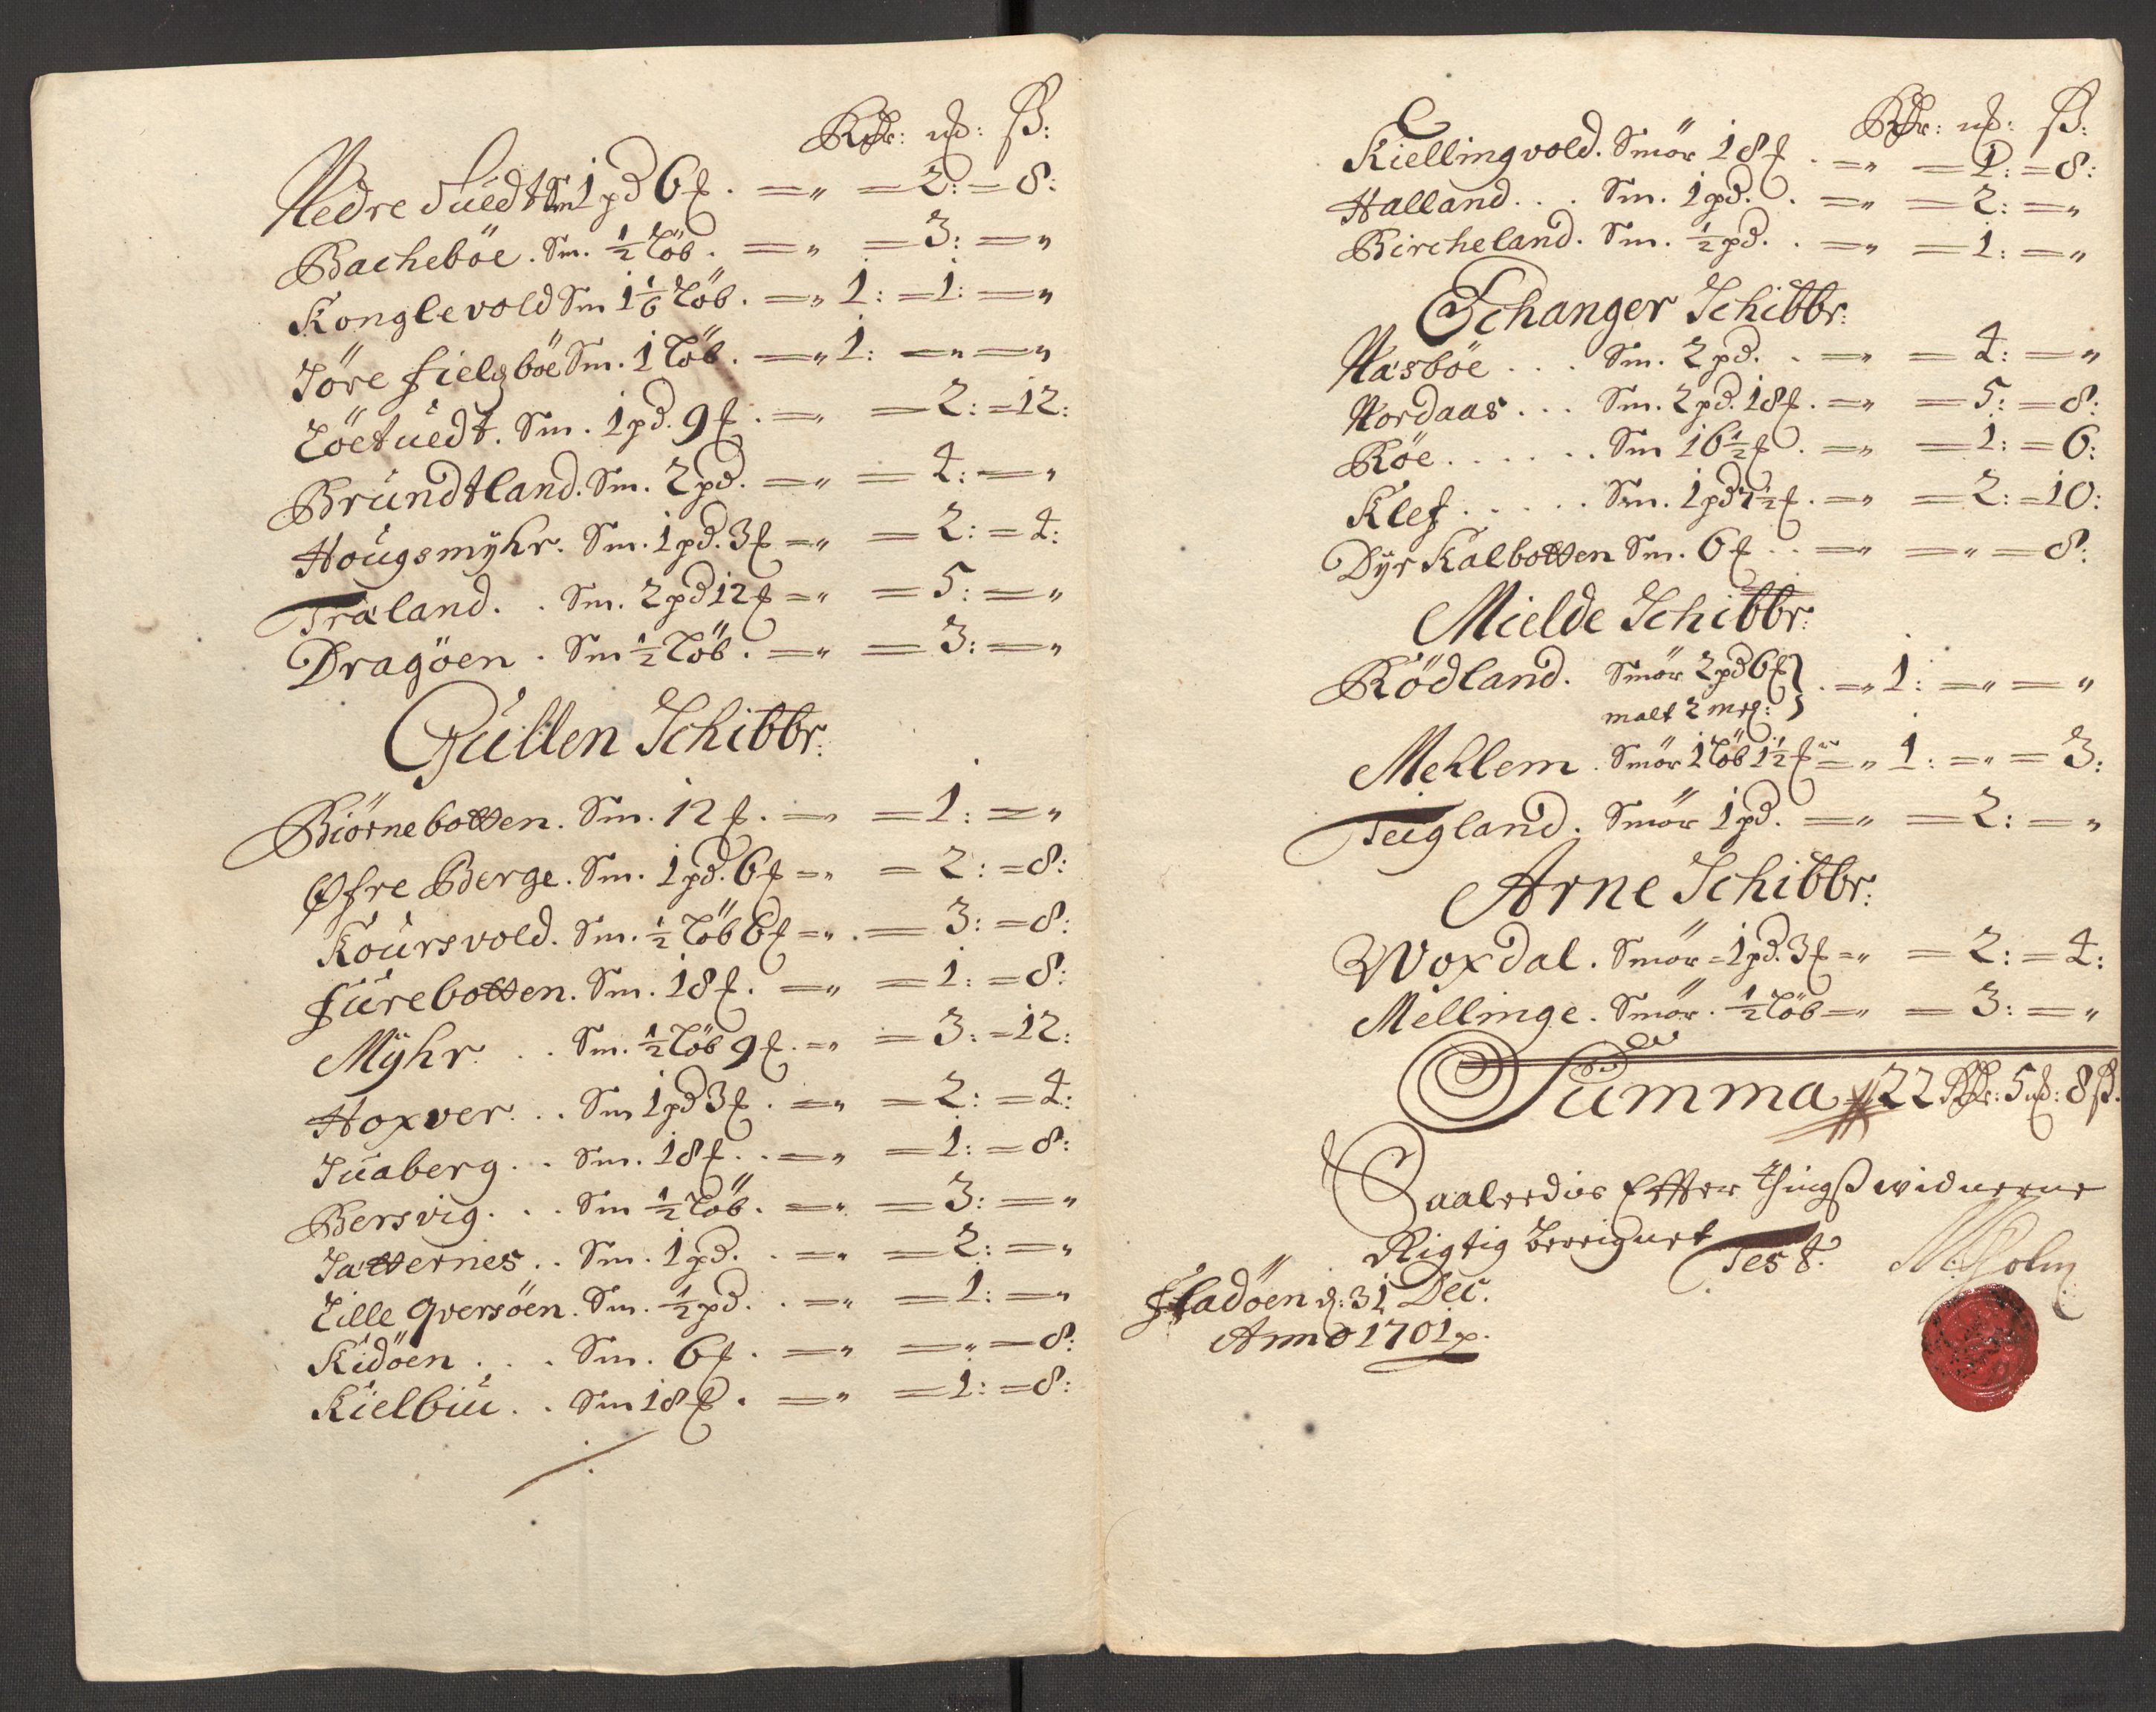 Rdr: mk: ß:
Nedre Tuedt Sm 1 pd 6 £. =" = 2: = 8:
Bacheböe. Sm. ½ Löb. =" = 3: ="
Konglevold Sm 1 1/6 Löb. =" 1: = 1: ="
Söre fielsböe Sm. 1 Löb. =" 1: =" ="
Löetuedt. Sm. 1 pd. 9 £. =" = 2: = 12:
Brundtland. Sm. 2 pd. =" = 4: ="
Hougsmÿhr. Sm. 1 pd. 3 £ =" = 2: = 4:
Træland. . Sm. 2 pd 12 £ =" = 5: ="
Dragöen. Sm ½ Löb. =" = 3: ="
Gullen Schibbr:
Biörnebotten. Sm. 12 £. =" = 1: ="
Øfre Berge. Sm. 1 pd. 6 £ =" = 2: = 8:
Koursvold. Sm. ½ Löb 6 £ =" . = 3: = 8:
furebotten. Sm. 18 £. =" = 1: = 8:
Mÿhr. . . Sm. ½ Löb 9 £. =" = 3: = 12:
Hoxver. . . Sm 1 pd 3 £. =" = 2: = 4:
Suaberg. . . Sm. 18 £. . =" = 1: = 8:
Bersvig. . . Sm ½ Löb. =" = 3: ="
Sætternes. . Sm. 1 pd. . =" = 2: ="
Lille Qversöen. Sm. ½ pd. . =" = 1: ="
Kidöen . . . Sm. 6 £. =" =" = 8:
Kielbiu. . Sm 18 £. =" = 1: = 8:
Rdr: mk: ß:
Kiellingvold. Smör 18 £. =" = 1: = 8:
Halland. . . Sm. 1 pd. . =" = 2: ="
Bircheland. Sm. ½ pd. . =" = 1: ="
Echanger Schibbr:
Næsböe . . . Sm. 2 pd. . =" = 4: ="
Nordaas. . . Sm. 2 pd. 18 £. =" = 5: = 8:
Röe. . . . . . Sm 16½ £. =" = 1: = 6:
Klef. . . . . Sm. 1 pd 7½ £. =" = 2: = 10:
Dÿrkalbotten Sm. 6 £. . =" =" = 8:
Mielde Schibbr:
Rödland. Smör 2 pd 6 £ } . =" 1: =" ="
malt 2 mel:
Mehlem. Smör 1 Löb 1½ £ =" 1: =" = 3:
Teigland. Smör 1 pd. =" = 2: ="
Arne Schibbr:
Woxdal. Smör = 1 pd. 3 £ =" = 2: = 4:
Mellinge. Smör. ½ Löb =" = 3: ="
Summa 22 Rdr: 5 mk: 8 ß.
Saaledis Effter thingß widnerne
Rigtig bereignet Test.
Holm
fladöen d: 31 Dec.
Anno 1701